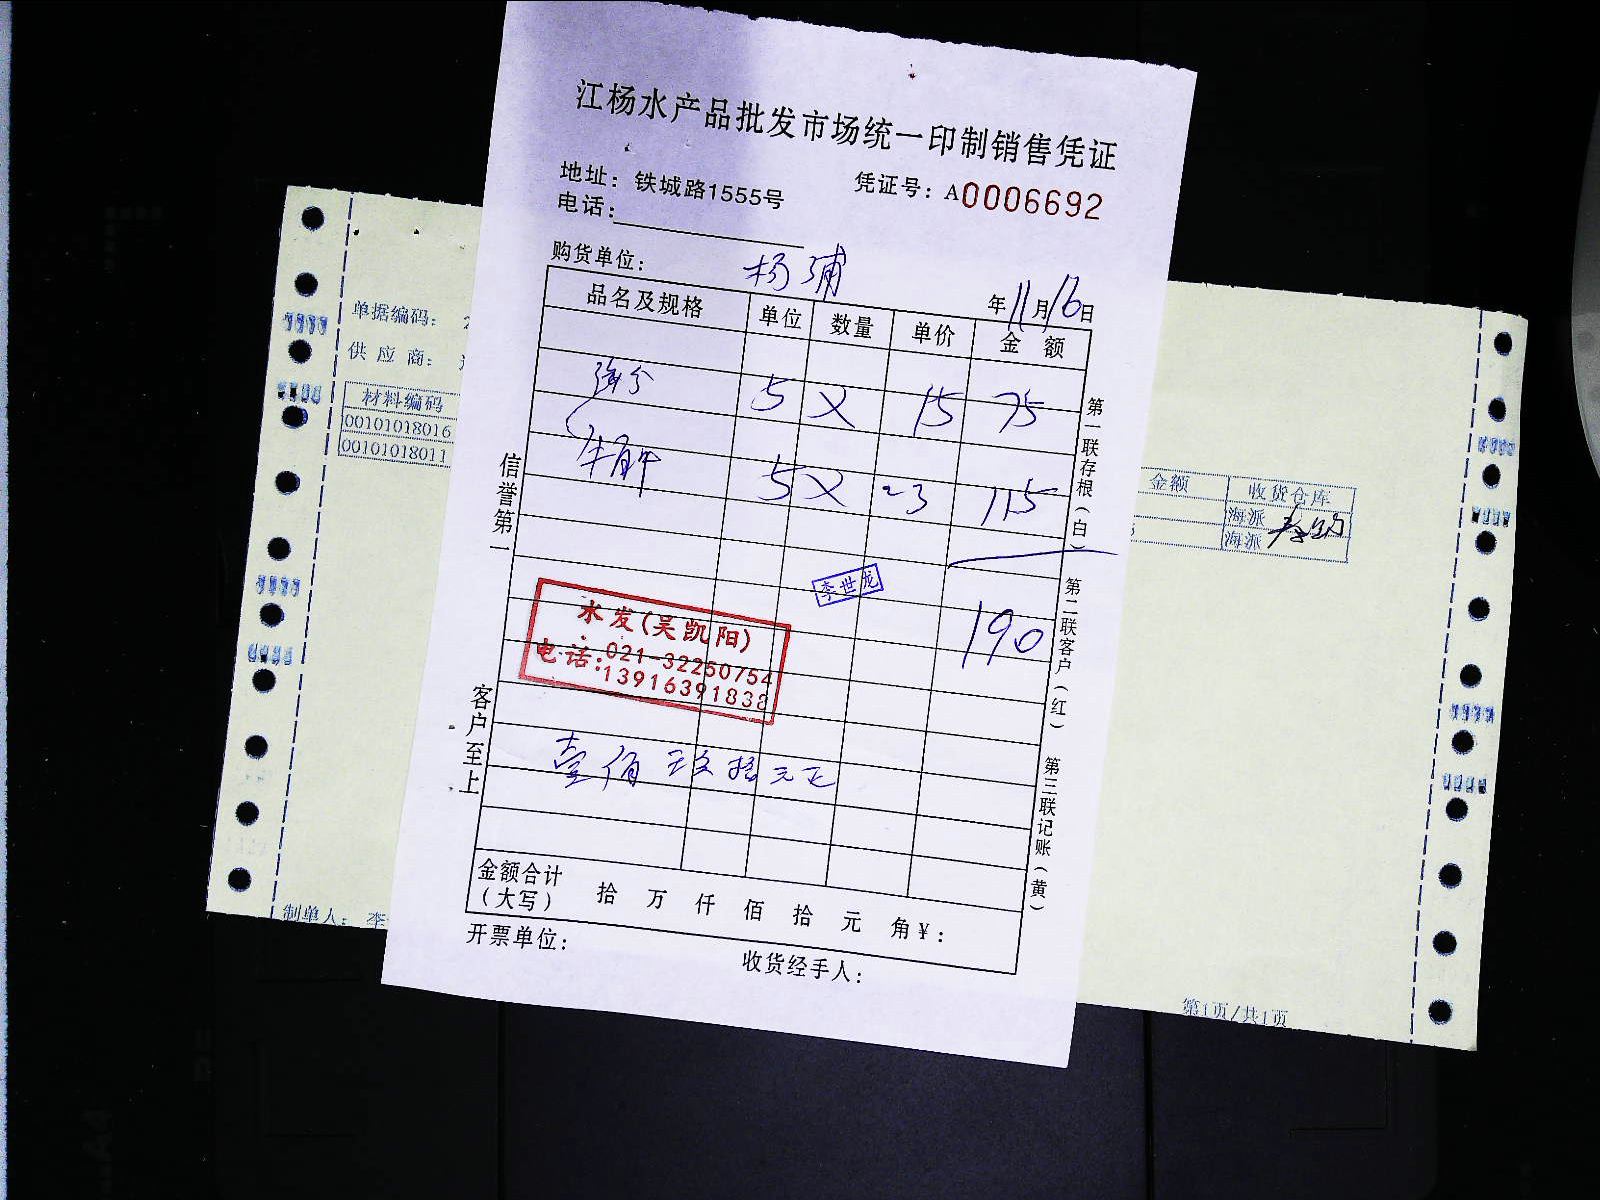 江杨水产品批发市场统一印制销售凭证
地址：铁城路1555号
凭证号：A0006692
电话：
购货单位： 杨浦
年11月16日
品名及规格 单位 数量 单价 金 额
5 X 15 75
牛 5 X 23 115
190
李世龙
水发(吴凯阳)
电话:021-32250754
13916391838
壹佰玖拾元正
金额合计
（大写） 拾 万 仟 佰 拾 元 角¥：
开票单位：
收货经手人：
信誉第一
客户至上
第一联存根（白）
第二联客户（红）
第三联记账（黄）
单据编码：
供 应 商：
材料编码
00101018016
00101018011
金额 收货仓库
海派
海派
制单人： 李
第1页/共1页